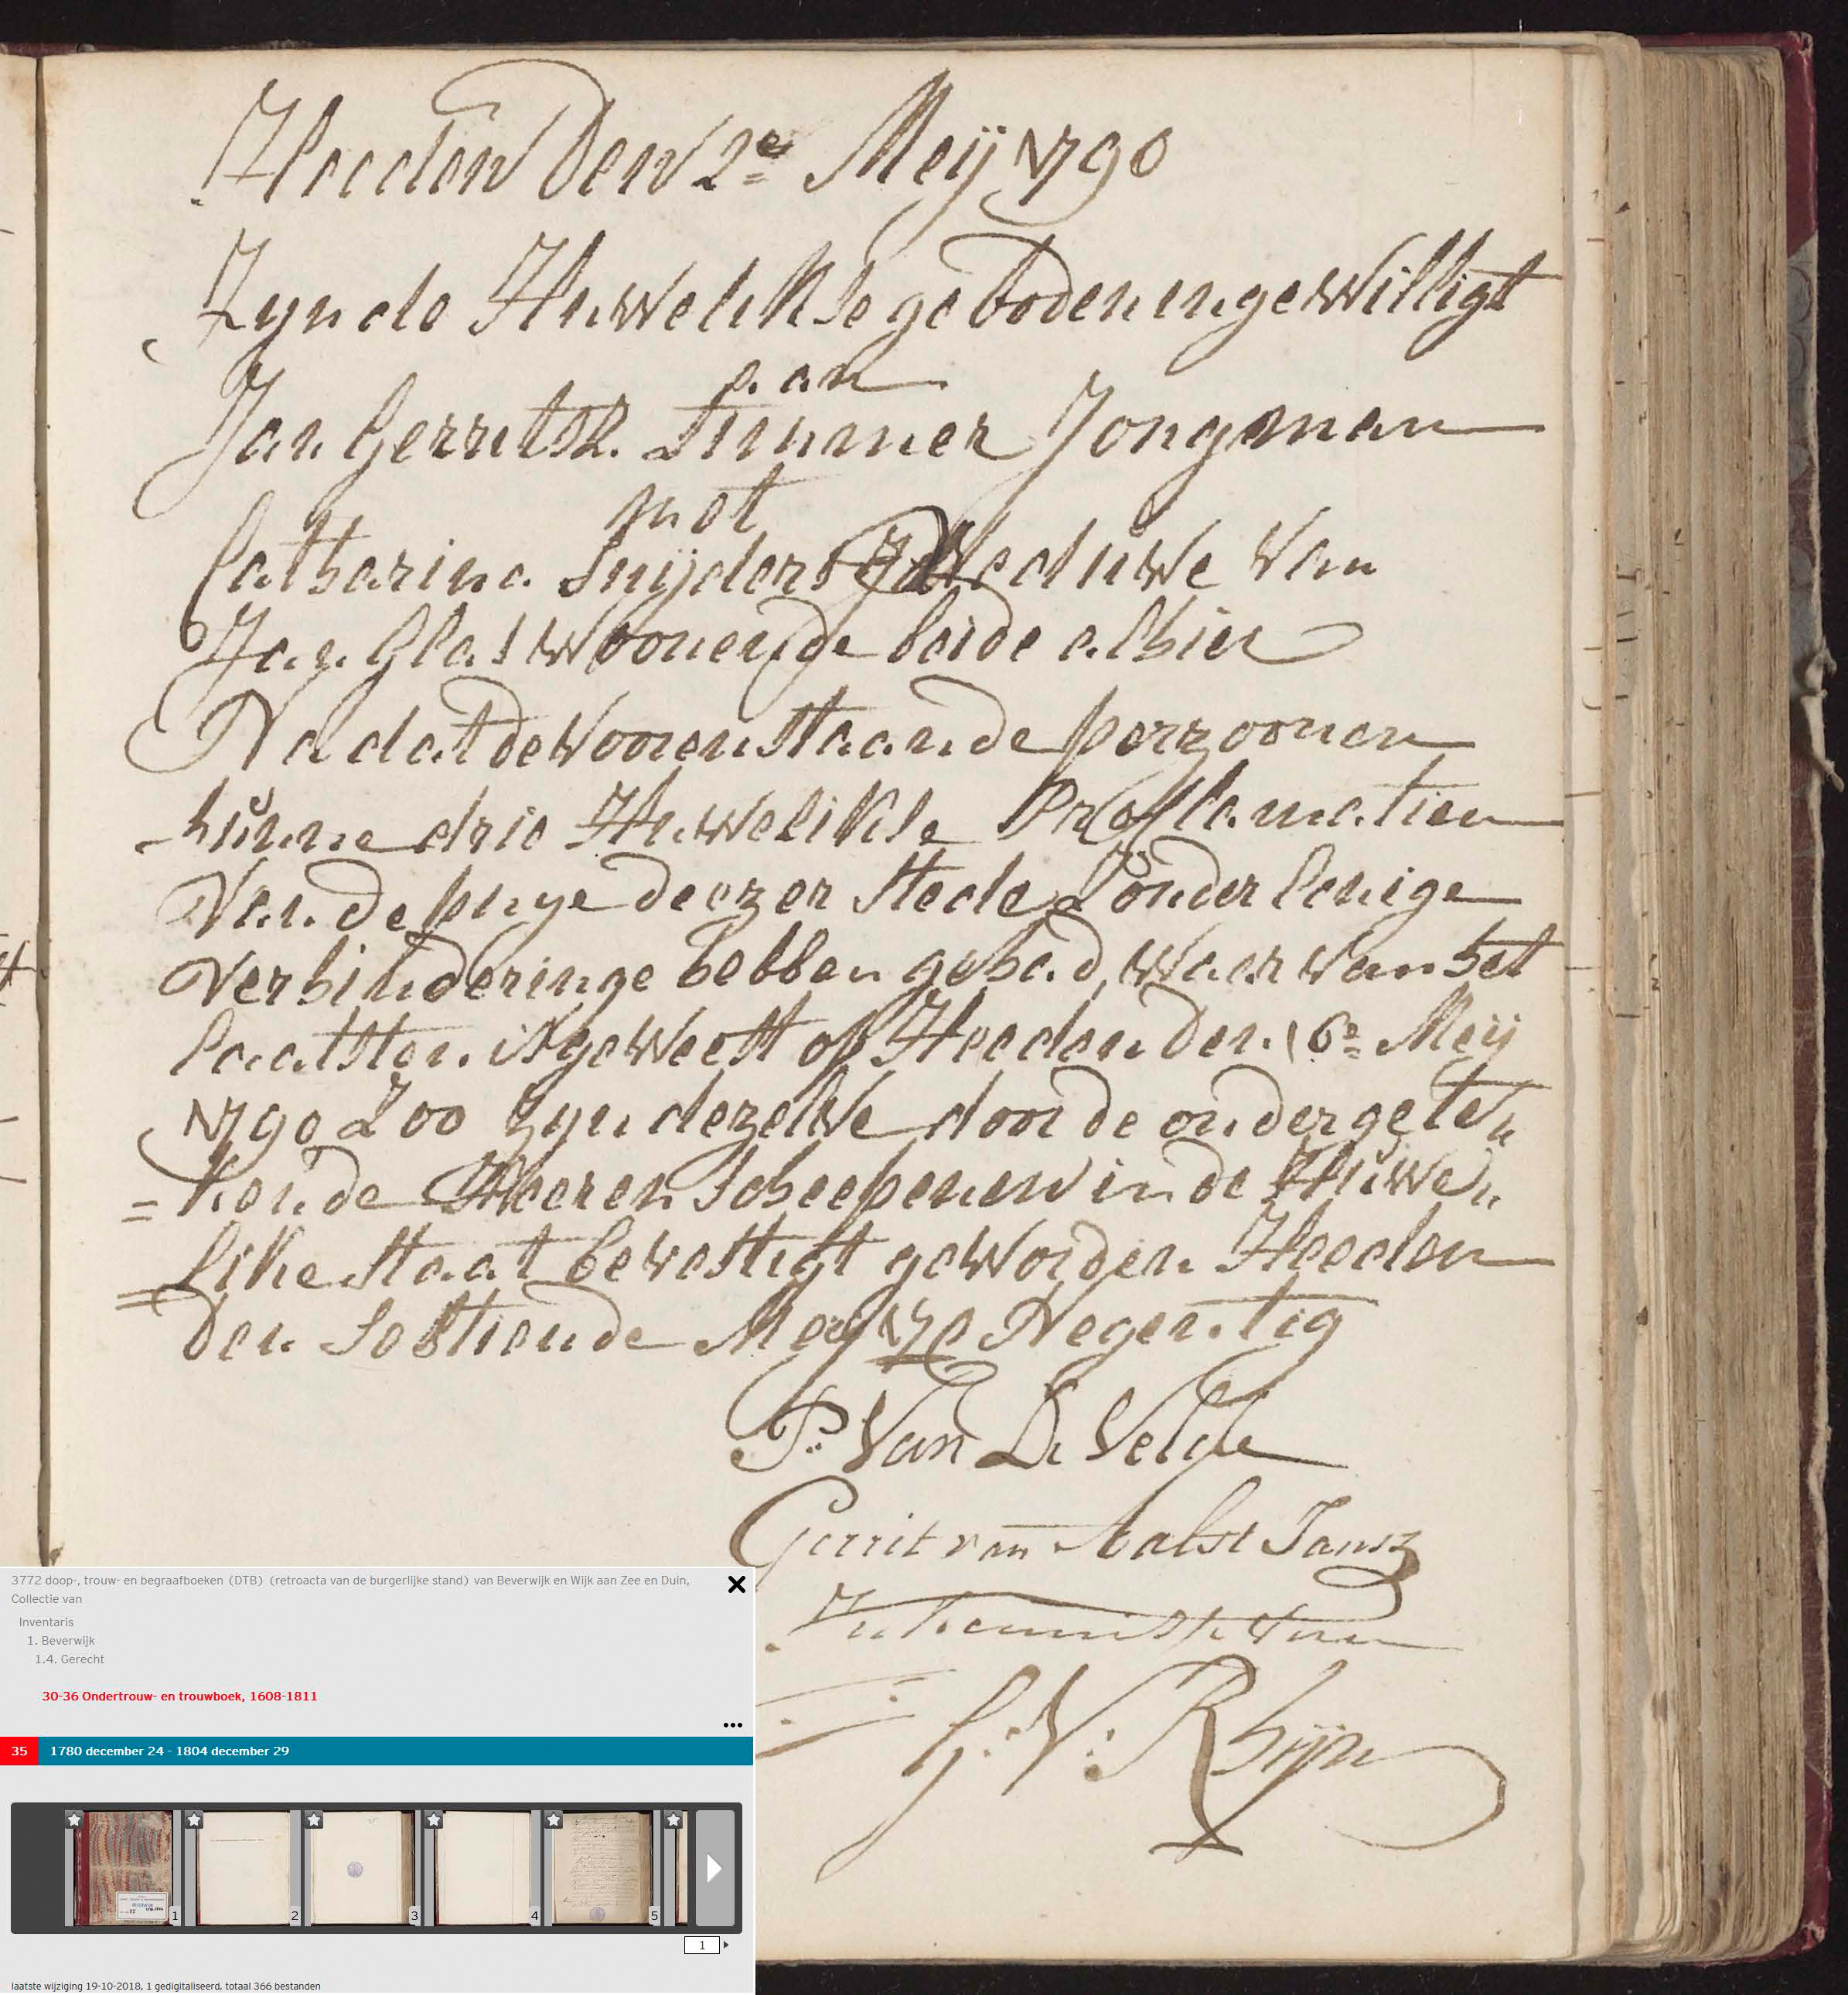 Heeden Den 2e Meij 1790
Zyn de Huwelikse geboden ingewilligt
aan
Jan Gerritsz. Timmer Jongman
met
Catharina Snijders Weduwe van
Jan Glas woonende beide alhier
Na dat de voorenstaande perzoonen
hunne drie Huwelikse Proclamatien
van de puye deezer stede zonder eenige
verhinderinge hebben gehad, waar van het
laatsten is geweest op Heeden den 16e Meij
1790 Zoo zyn dezelve door de ondergete„
= kende Heeren Scheepenen in de Huwe„
= like staat bevestigt geworden Heeden
Den Sestiende Mey 17e Negentig
P: Van De Velde
Gerrit van Aalst Jansz
In kennisse van
G: V: Rhijn
3772 doop-, trouw- en begraafboeken (DTB) (retroacta van de burgerlijke stand) van Beverwijk en Wijk aan Zee en Duin,
Collectie van
Inventaris
1. Beverwijk
1.4. Gerecht
30-36 Ondertrouw- en trouwboek, 1608-1811
35 1780 december 24 - 1804 december 29
1 2 3 4 5
1
laatste wijziging 19-10-2018, 1 gedigitaliseerd, totaal 366 bestanden